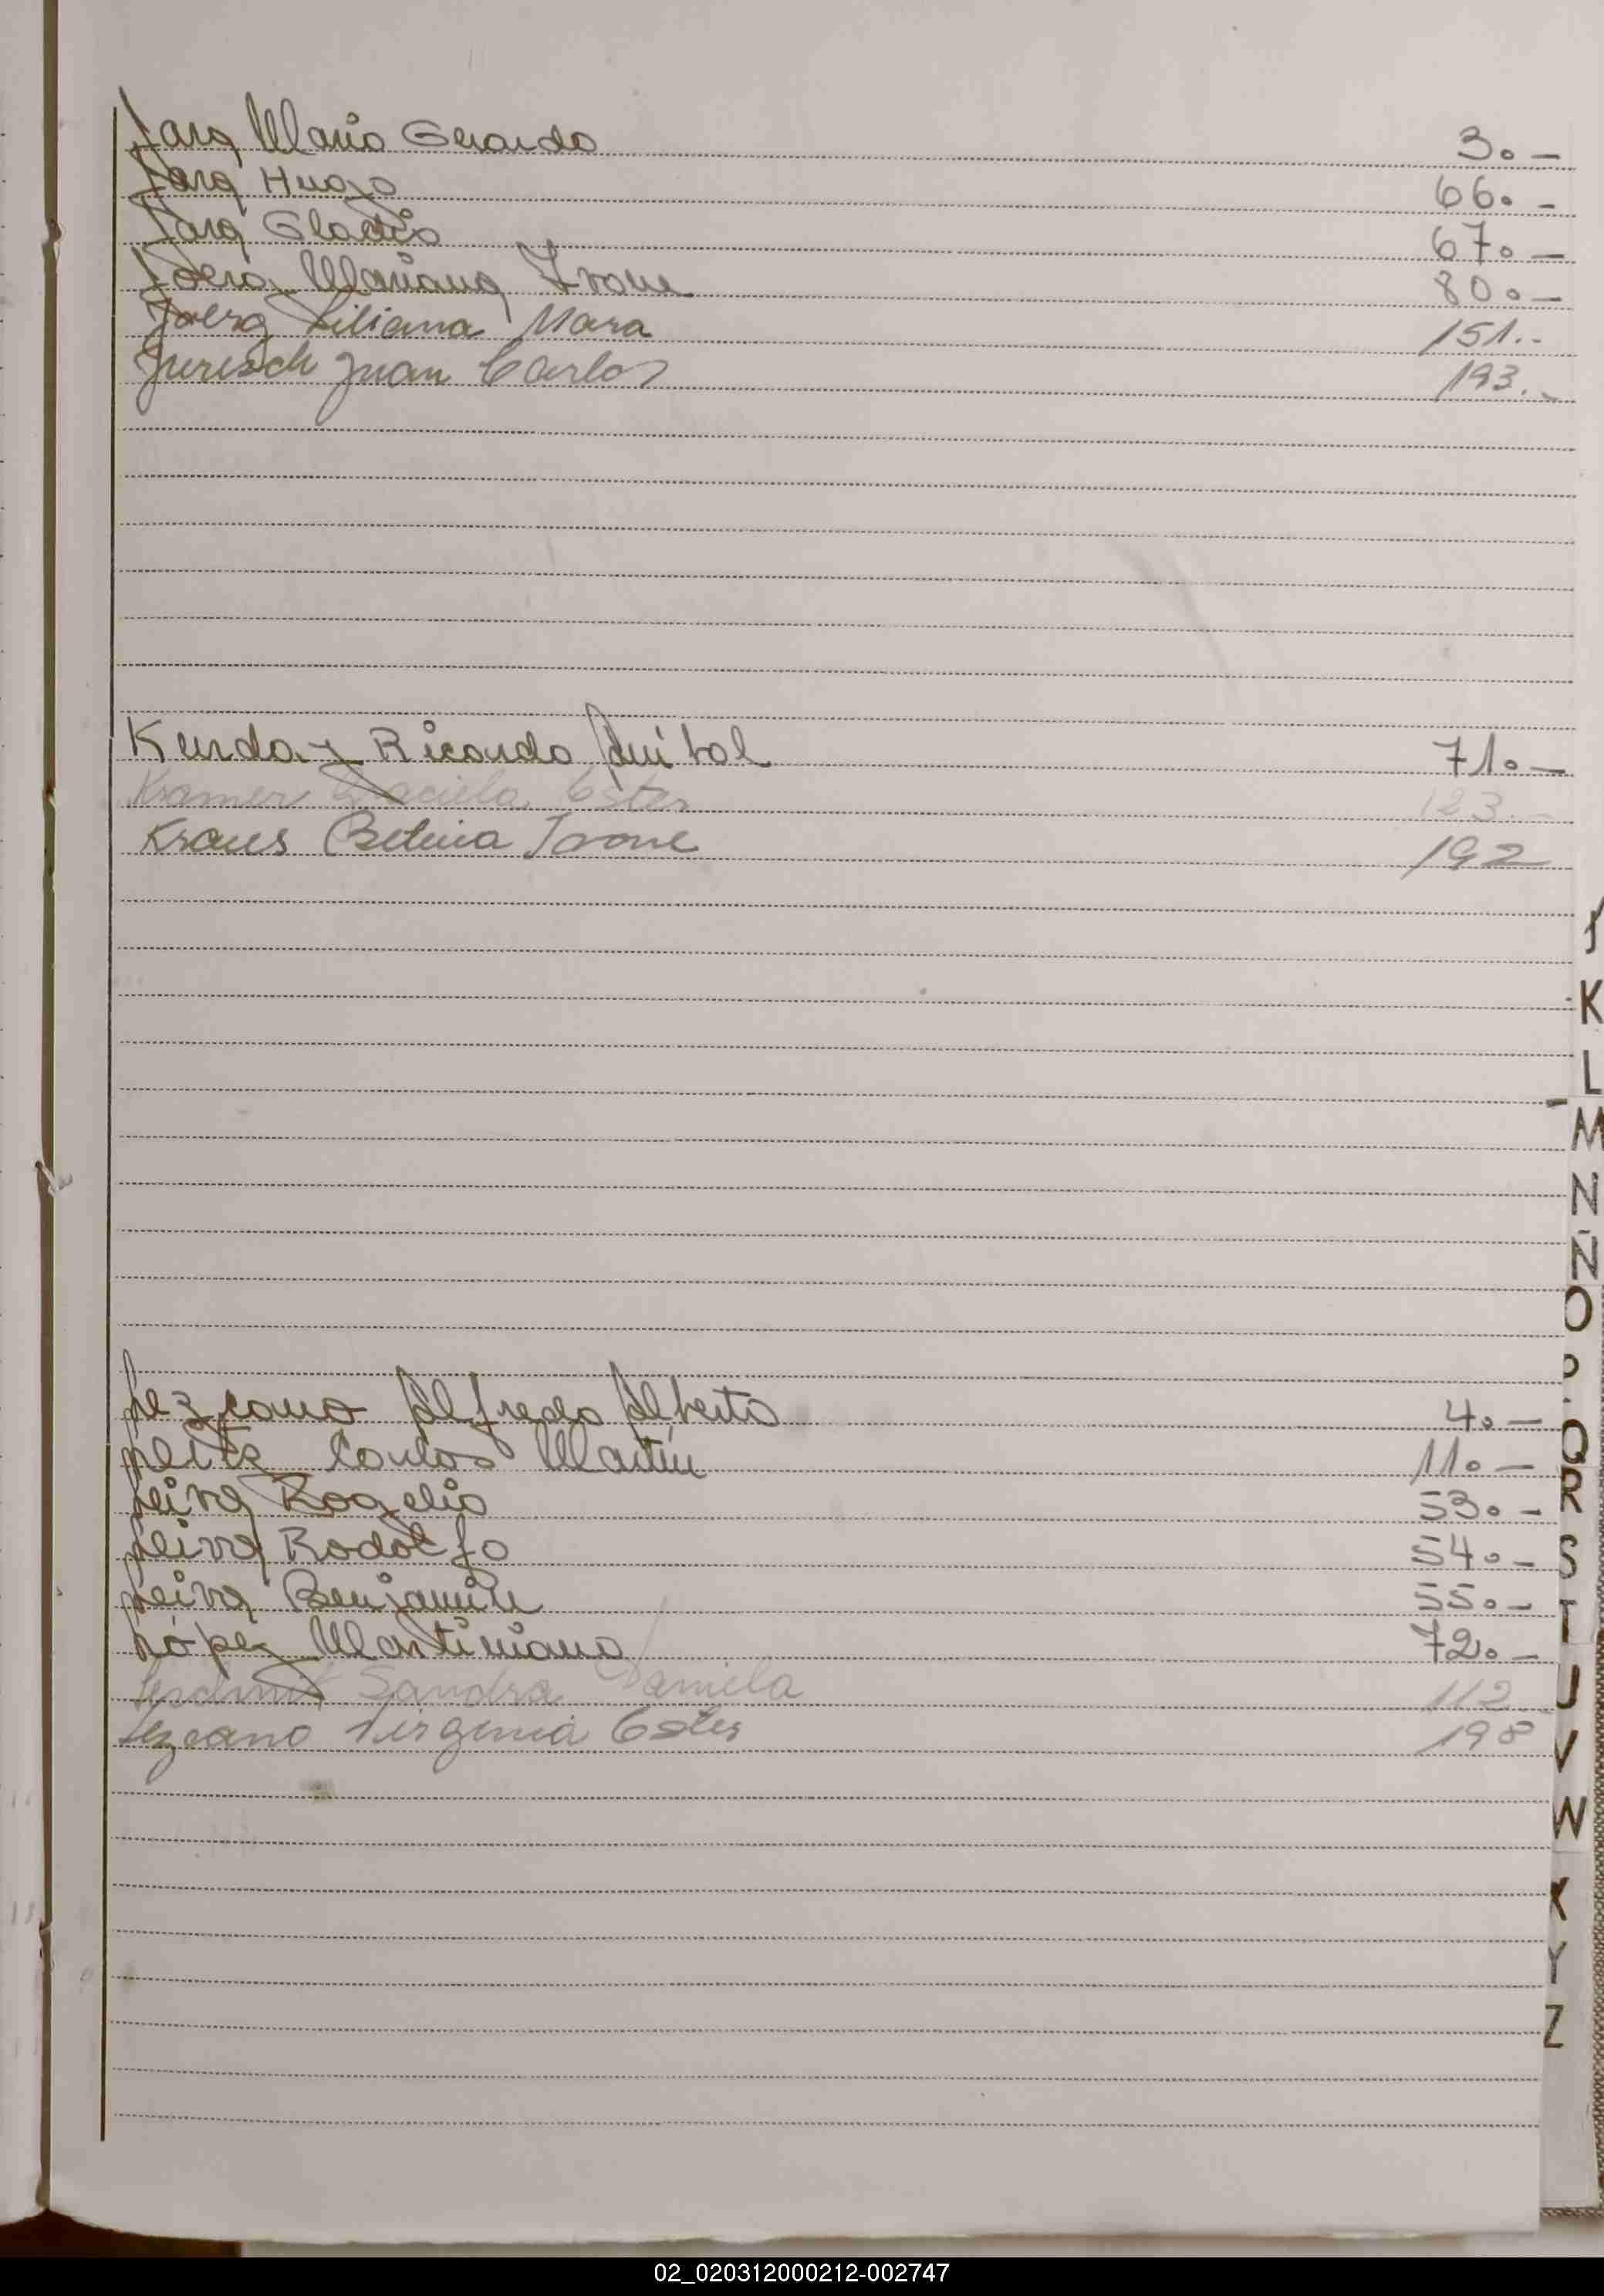 Jarq Mario Gerardo 3.-
Jarq Hugo 66.-
Jarq Gladis 67.-
Joerg Mariana Ivone 80.-
Joerg Liliana Mara 151.-
Jurisch Juan Carlos 193.-
Ricardo Anibal 71.-
Kramer Graciela Ester 123.-
Kraus Betina Ivone 192
Lezcano Alfredo Alberto 4.-
Carlos Martin 11.-
Leiva Rogelio 53.-
Leiva Rodolfo 54.-
Leiva Benjamin 55.-
López Martiniano 72.-
Sandra Daniela 112.-
Lezcano Virginia Ester 198
J
K
L
M
N
Ñ
O
P
Q
R
S
T
U
V
W
X
Y
Z
02_020312000212-002747